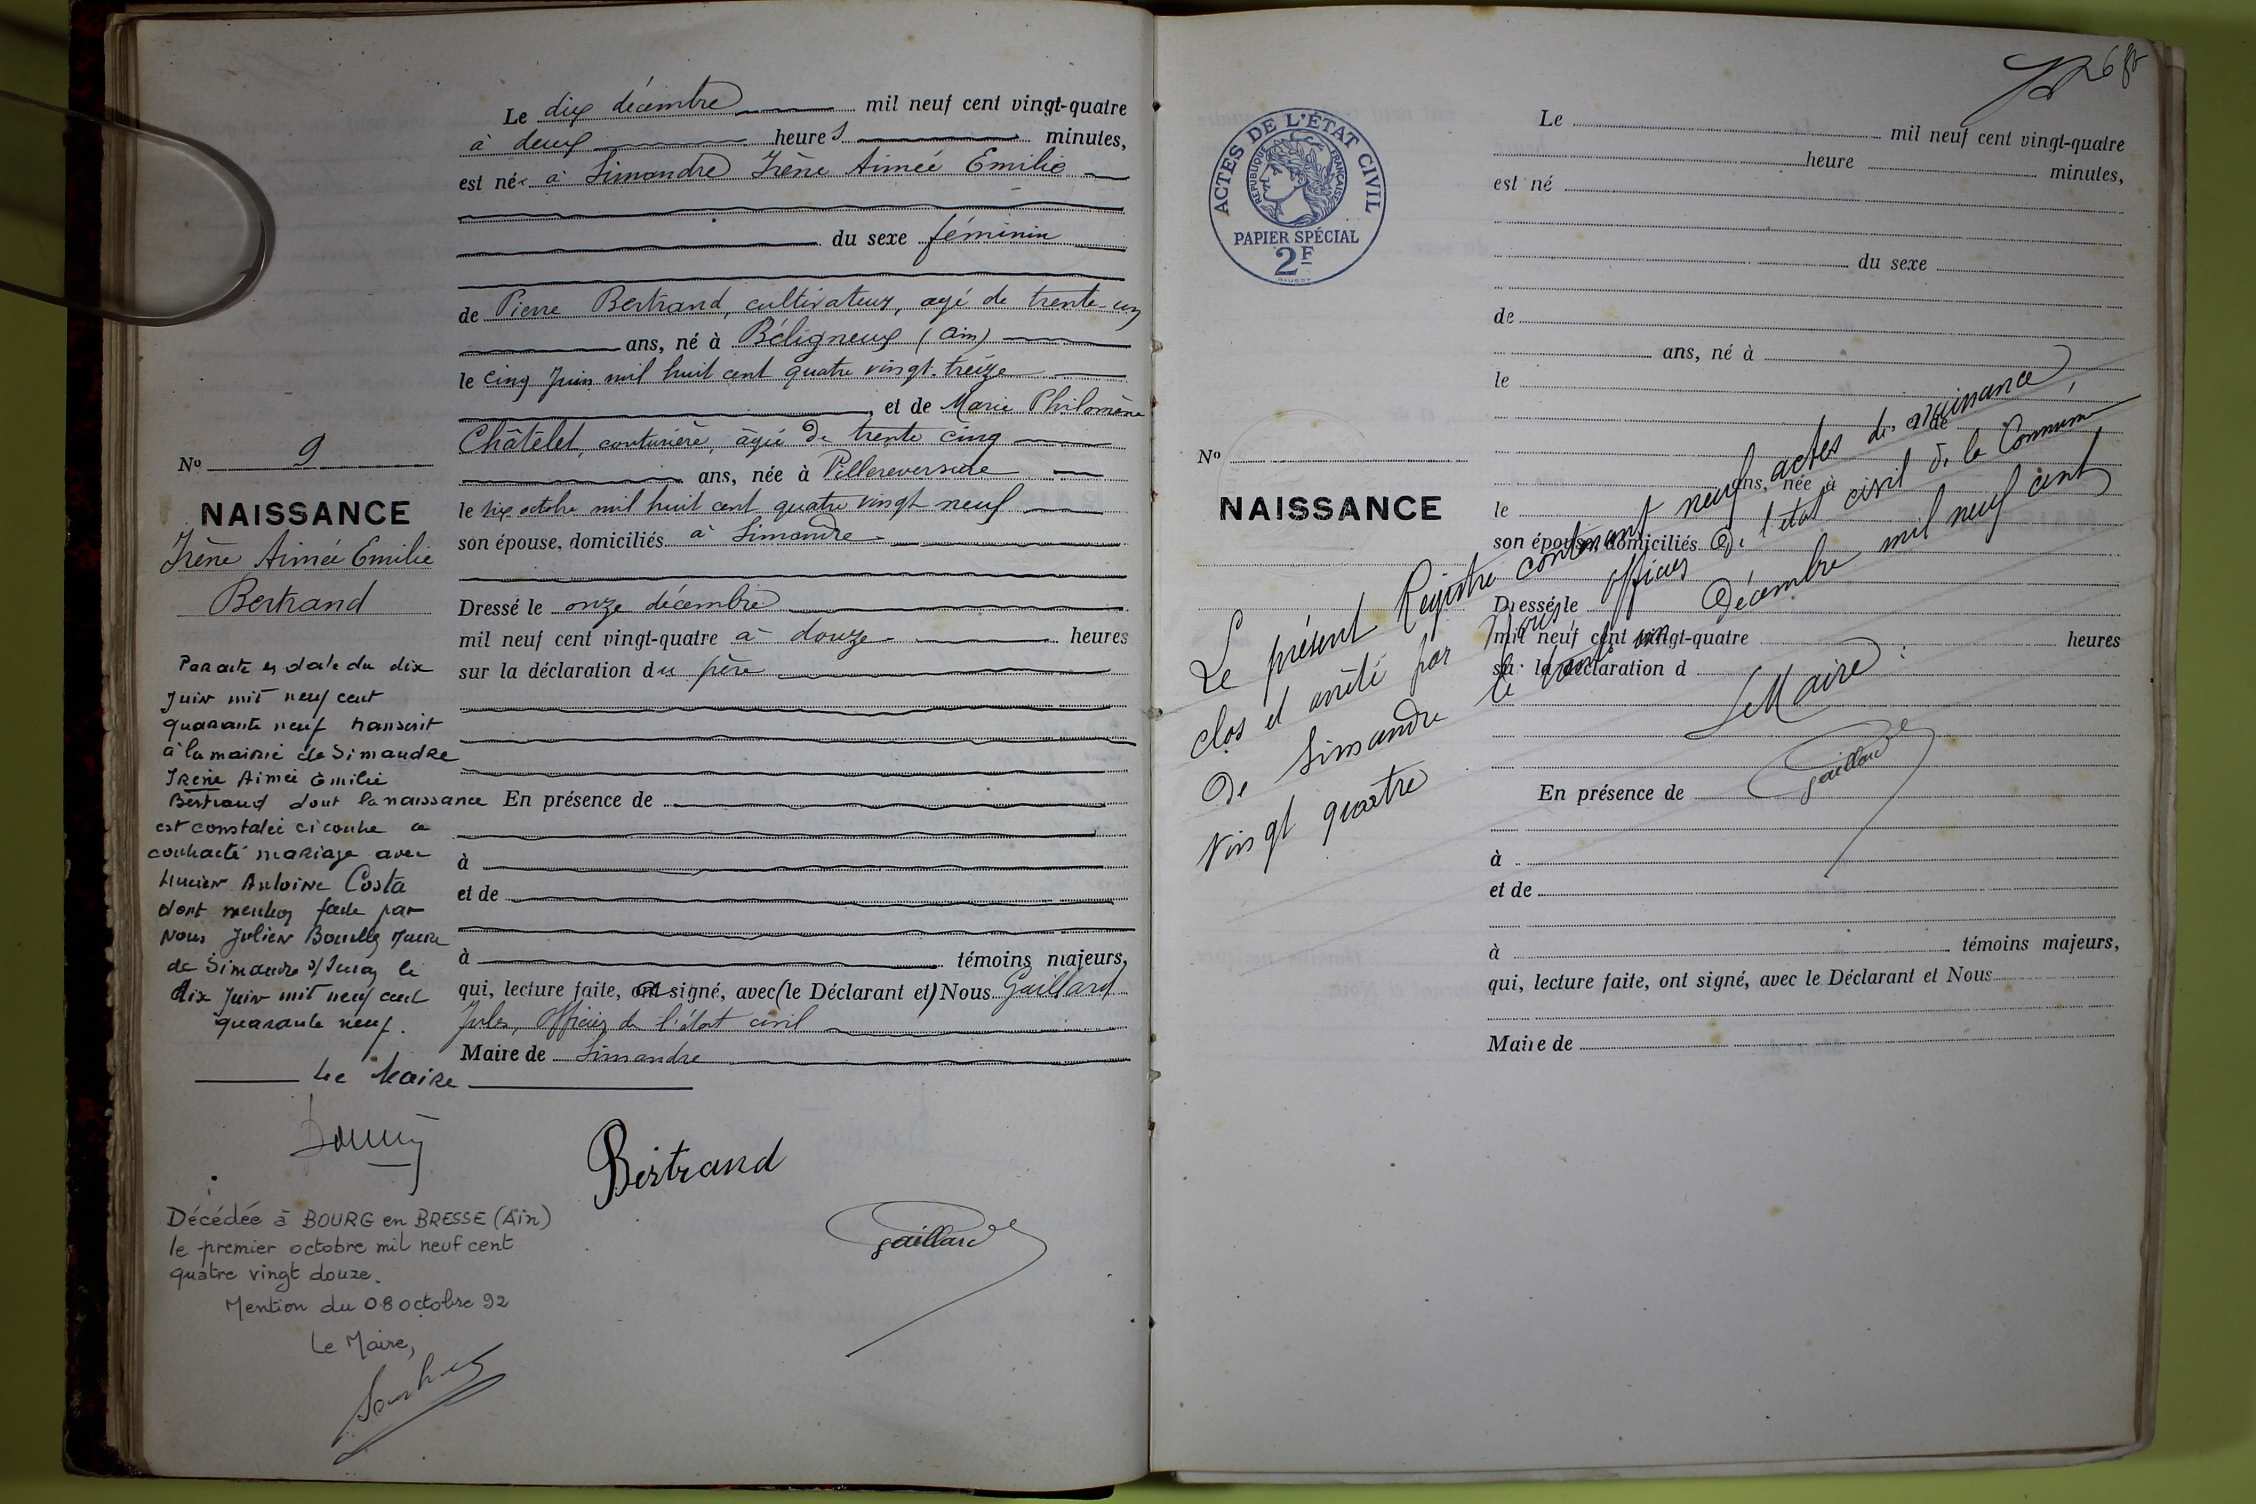 Le dix décembre mil neuf cent vingt-quatre
à deux heures minutes,
est née à Simandre Irène Aimée Emilie
du sexe féminin
de Pierre Bertrand, cultivateur, agé de trente-un
ans, né à Béligneux (Ain)
le cinq Juin mil huit cent quatre vingt-treize
, et de Marie Philomène
Châtelet, couturière, âgée de trente cinq
ans, née à Villereversure
le six octobre mil huit cent quatre vingt neuf
son épouse, domiciliés à Simandre
Dressé le onze décembre
mil neuf cent vingt-quatre à douze heures
sur la déclaration du père
En présence de
à
et de
à témoins majeurs,
qui, lecture faite, ont signé, avec (le Déclarant et) Nous Gaillard
Jules, officier de l'état civil
Maire de Simandre
Bertrand
Gaillard
No 9
NAISSANCE
Irène Aimée Emilie
Bertrand
Par acte en date du dix
Juin mil neuf cent
quarante neuf transcrit
à la mairie de Simandre
Irène Aimée Emilie
Bertrand dont la naissance
est constatée ci contre a
contracté mariage avec
Lucien Antoine Costa
dont mention faite par
Nous Julien Maire
de Simandre s/Suran le
dix Juin mil neuf cent
quarante neuf.
Le Maire
Décédée à BOURG en BRESSE (Ain)
le premier octobre mil neuf cent
quatre vingt douze.
Mention du 08 octobre 92
Le Maire,
26
ACTES DE L'ÉTAT CIVIL
RÉPUBLIQUE FRANÇAISE
PAPIER SPÉCIAL
2F
Le mil neuf cent vingt-quatre
heure minutes,
est né
du sexe
de
ans, né à
le
et de
ans, née à
le
son épouse, domiciliés
Dressé le
mil neuf cent vingt-quatre heures
sur la déclaration d
En présence de
à
et de
à témoins majeurs,
qui, lecture faite, ont signé, avec le Déclarant et Nous
Maire de
No
NAISSANCE
Le présent Registre contenant neuf actes de naissance
clos et arrêté par Nous officier de l'état civil de la Commune
de Simandre le trente un Décembre mil neuf cent
vingt quatre
Le Maire :
Gaillard